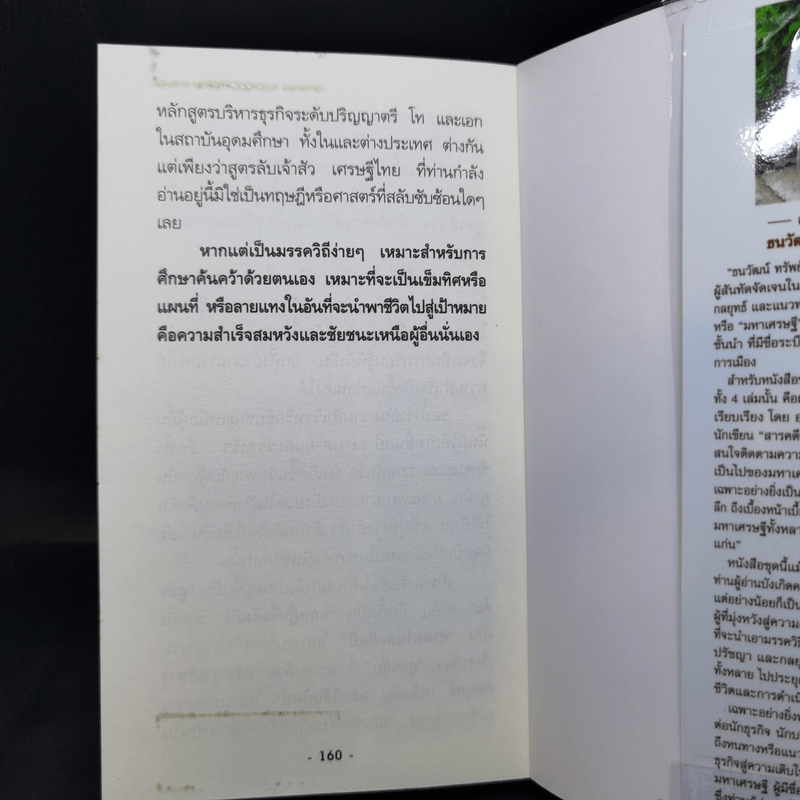 หลักสูตรบริหารธุรกิจระดับปริญญาตรี โท และเอก
ในสถาบันอุดมศึกษา ทั้งในและต่างประเทศ ต่างกัน
แต่เพียงว่าสูตรลับเจ้าสัว เศรษฐีไทย ที่ท่านกำลัง
อ่านอยู่นี้มิใช่เป็นทฤษฎีหรือศาสตร์ที่สลับซับซ้อนใดๆ
เลย
หากแต่เป็นมรรควิถีง่ายๆ เหมาะสำหรับการ
ศึกษาค้นคว้าด้วยตนเอง เหมาะที่จะเป็นเข็มทิศหรือ
แผนที่ หรือลายแทงในอันที่จะนำพาชีวิตไปสู่เป้าหมาย
คือความสำเร็จสมหวังและชัยชนะเหนือผู้อื่นนั่นเอง
- 160 -
ธนวัฒน์
"ธนวัฒน์ ทรัพย์
ผู้สันทัดจัดเจนใน
กลยุทธ์ และแนวท
หรือ "มหาเศรษฐี"
ชั้นนำ ที่มีชื่อระบื
การเมือง
สำหรับหนังสือช
ทั้ง 4 เล่มนั้น คือ
เรียบเรียง โดย อ
นักเขียน "สารคดี
สนใจติดตามความ
เป็นไปของมหาเศ
เฉพาะอย่างยิ่งเป็น
ลึก ถึงเบื้องหน้าเบื้
มหาเศรษฐีทั้งหลา
แก่น"
หนังสือชุดนี้แม้
ท่านผู้อ่านบังเกิดค
แต่อย่างน้อยก็เป็น
ผู้ที่มุ่งหวังสู่ความ
ที่จะนำเอามรรควิธี
ปรัชญา และกลยุ
ทั้งหลาย ไปประยุก
ชีวิตและการดำเนิ
เฉพาะอย่างยิ่ง
ต่อนักธุรกิจ นักบ
ถึงหนทางหรือแนว
ธุรกิจสู่ความเติบใ
มหาเศรษฐี ผู้มีชื่อ